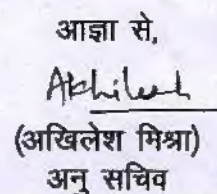 आज्ञा से,
Akhilesh
(अखिलेश मिश्रा)
अनु सचिव